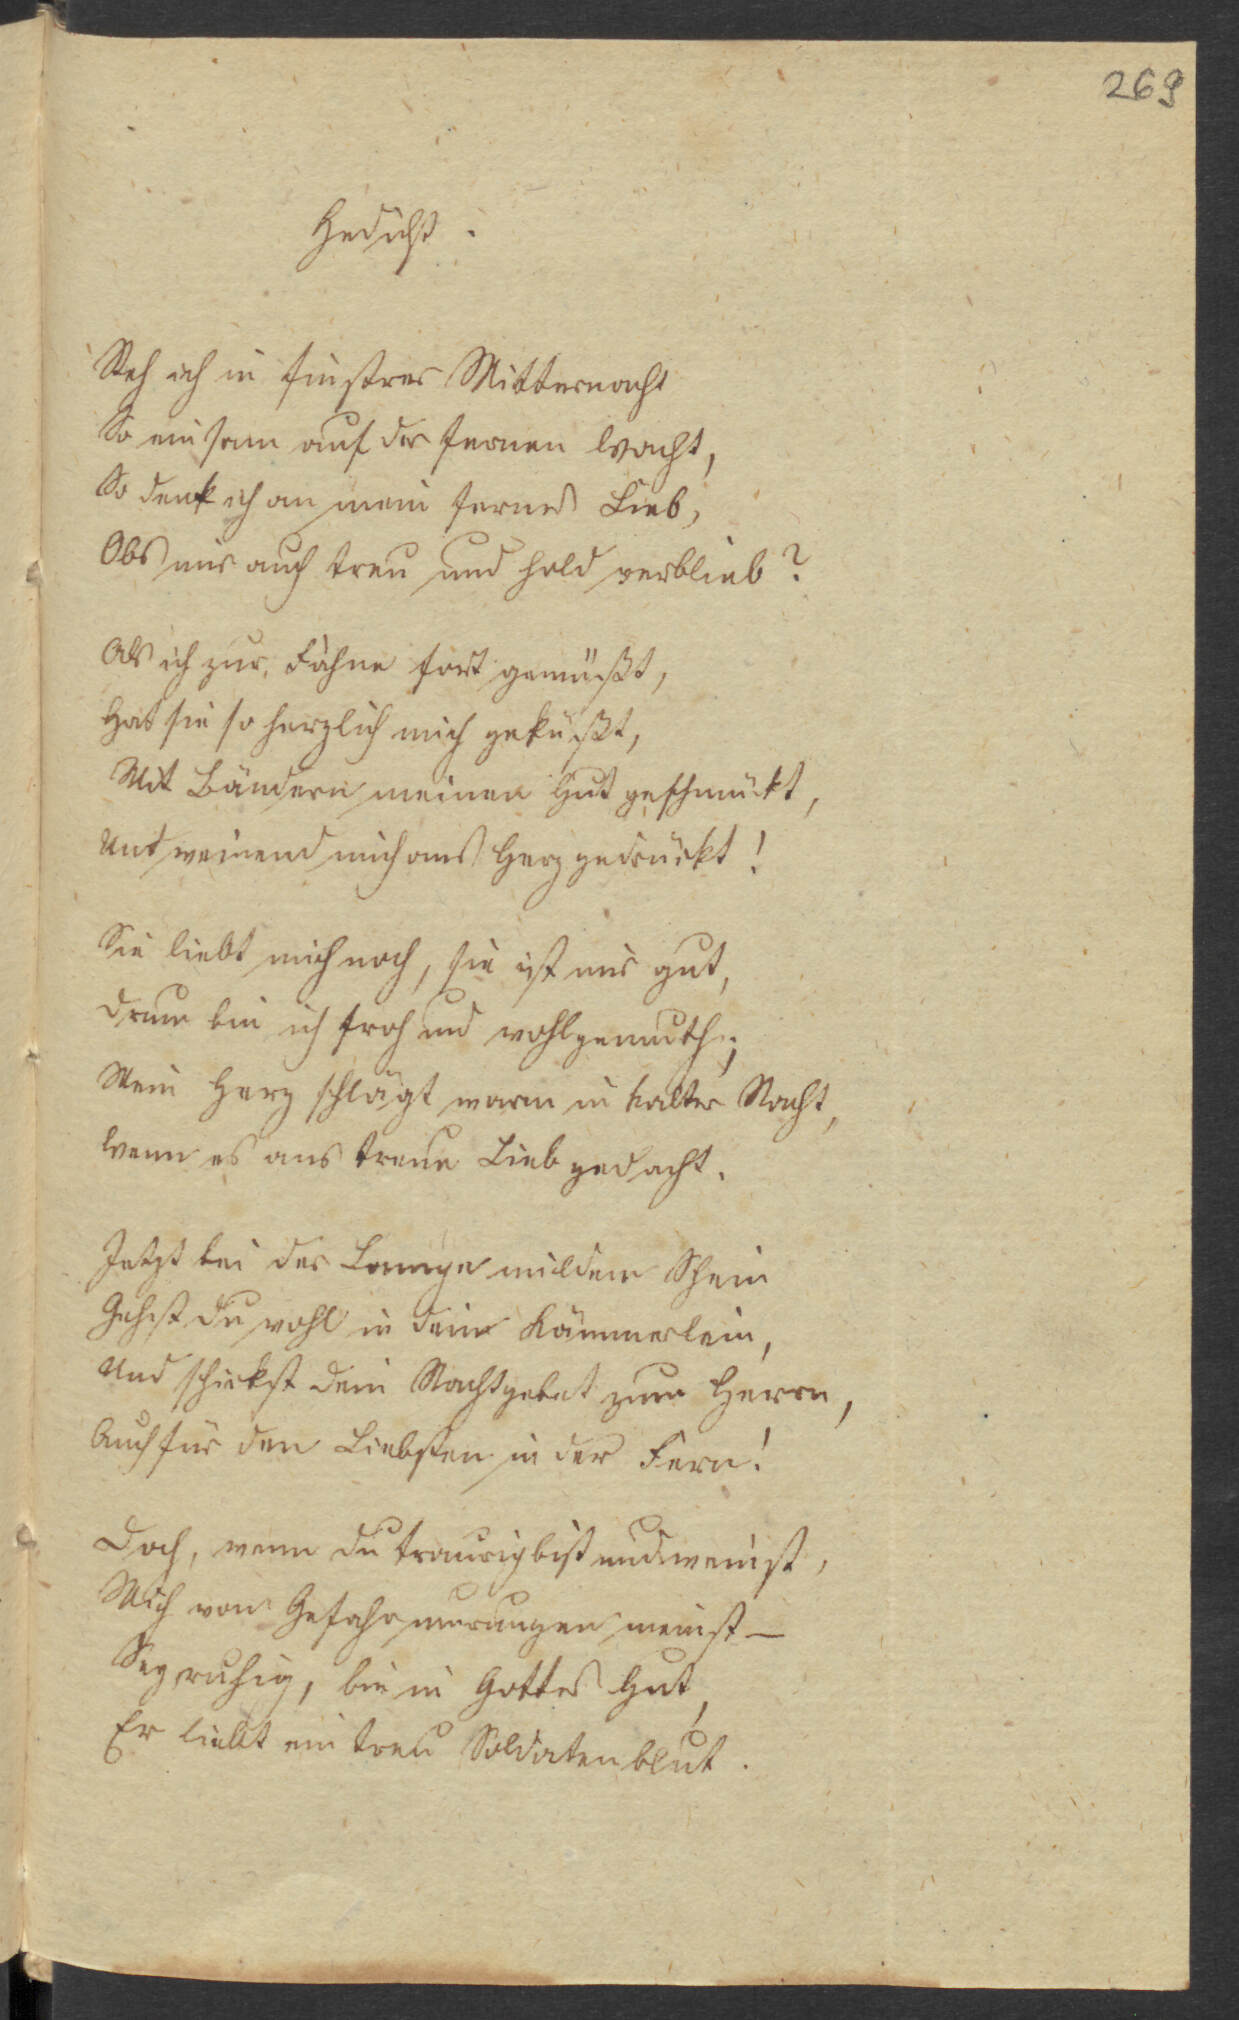 269
Gedicht.
Steh ich in finstrer Mitternacht
So einsam auf der fernen Wacht,
So denk ich an mein fernes Lieb,
Obs mir auch treu und hold verblieb?
Als ich zur Fahne fort gemüßt,
Hat sie so herzlich mich geküßt,
Mit Bändern meinen Hut geschmückt,
Und weinend mich ans Herz gedrückt!
Sie liebt mich noch, sie ist mir gut,
Drum bin ich froh und wohlgemuth;
Mein Herz schlägt warm in kalter Nacht,
Wenn es ans treue Lieb gedacht.
Jetzt bei der Lampe mildem Schein
Gehst du wohl in dein Kämmerlein,
Und schickst dein Nachtgebet zum Herrn,
Auch für den Liebsten in der Fern!
Doch, wenn du traurig bist und weinst,
Mich von Gefahr umrungen meinst –
Sey ruhig, bin in Gottes Hut,
Er liebt ein treu Soldatenblut.